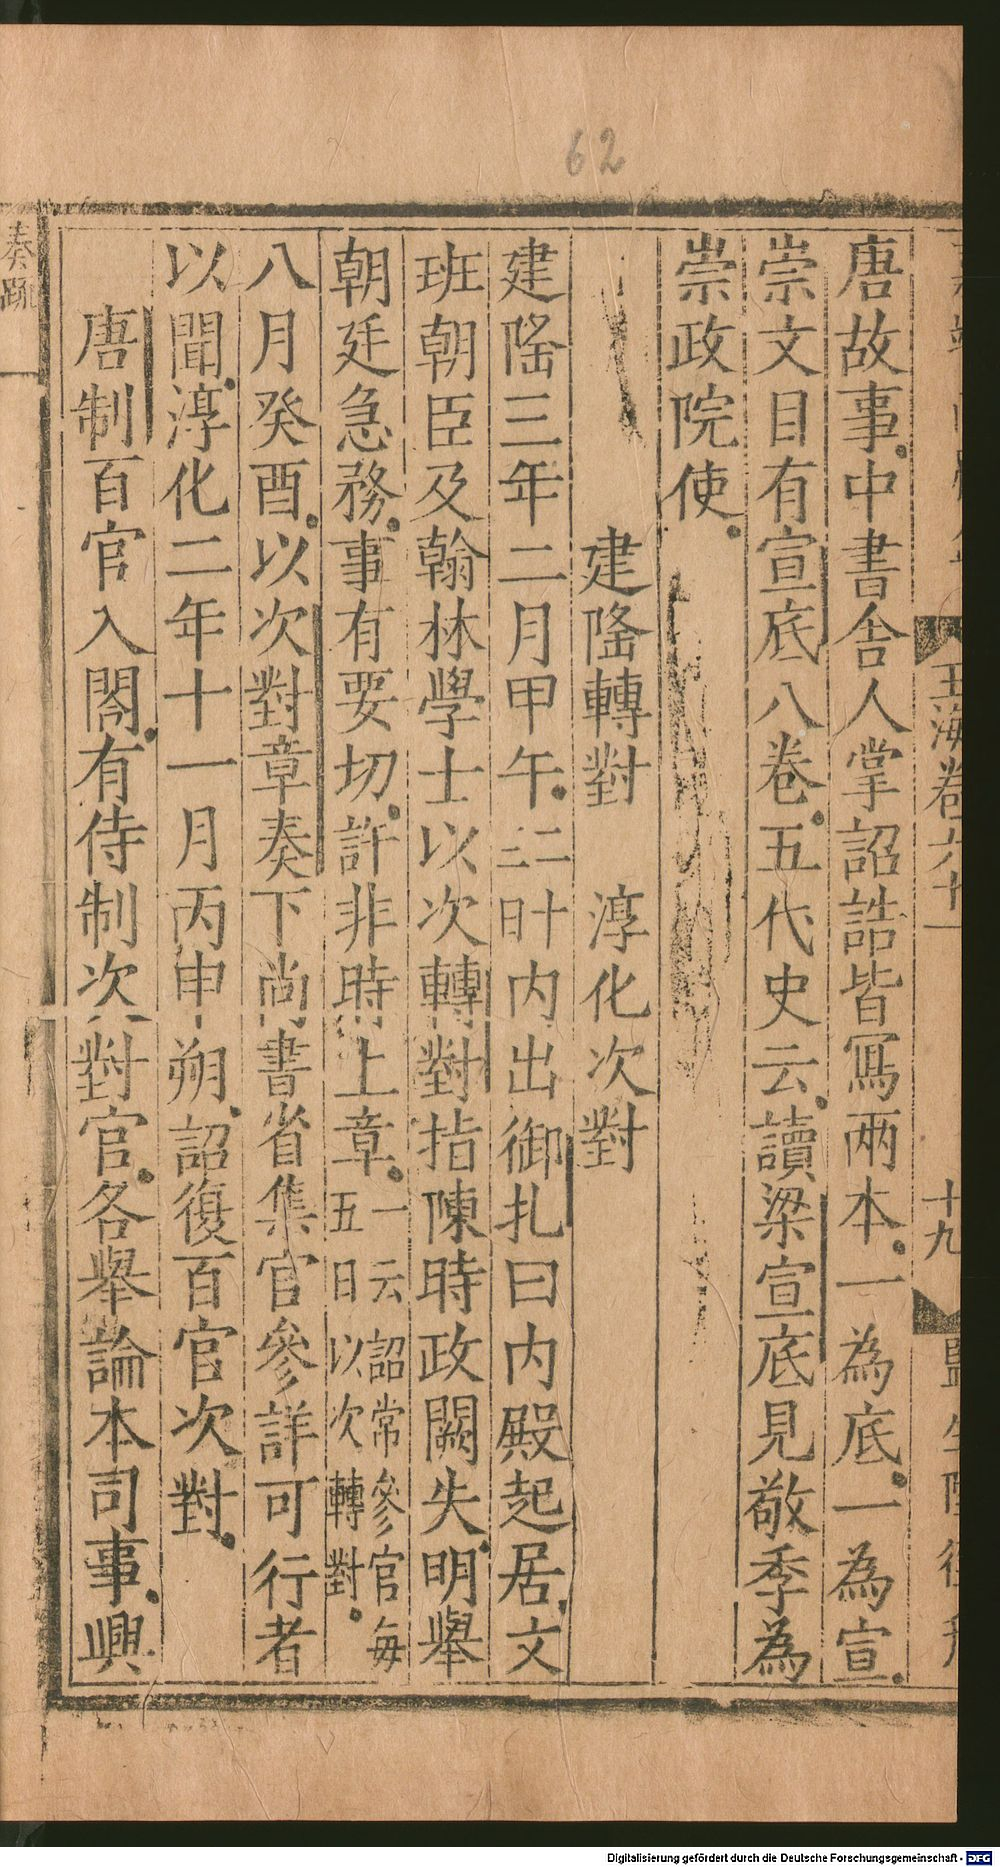 62
玉海卷六十一
十九
唐故事中書舍人掌詔誥皆寫兩本一為底一為宣
崇文目有宣底八卷五代史云讀梁宣底見敬季為
崇政院使
建隆轉對 淳化次對
建隆三年二月甲午二十二日內出御札曰內殿起居文
班朝臣及翰林學士以次轉對指陳時政闕失明舉
朝廷急務事有要切許非時上章一云詔常參官每五日以次轉對
八月癸酉以次對章奏下尚書省集官參詳可行者
以聞淳化二年十一月丙申朔詔復百官次對
唐制百官入閣有侍制次對官各舉論本司事興
奏疏
Digitalisierung gefördert durch die Deutsche Forschungsgemeinschaft - DFG